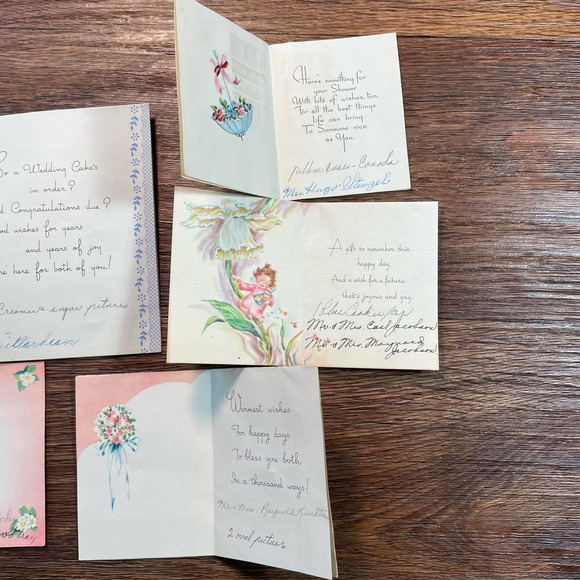 Here's something for
your Shower
With lots of wishes, too,
For all the best things
life can bring
To Someone nice
as You.
Mrs. Hugo Stenzel
So a Wedding Cake's
in order?
Congratulations due?
wishes for years
and years of joy
here for both of you!
Creamer & sugar
A gift to remember this
happy day
And a wish for a future
that's joyous and gay.
Blue Cookie Jar
Mr. & Mrs. Carl Jacobson
Mr. & Mrs. Maynard
Jacobson
Warmest wishes
For happy days
To bless you both
In a thousand ways!
Mr. & Mrs. Reynold
2 oval pictures
tray